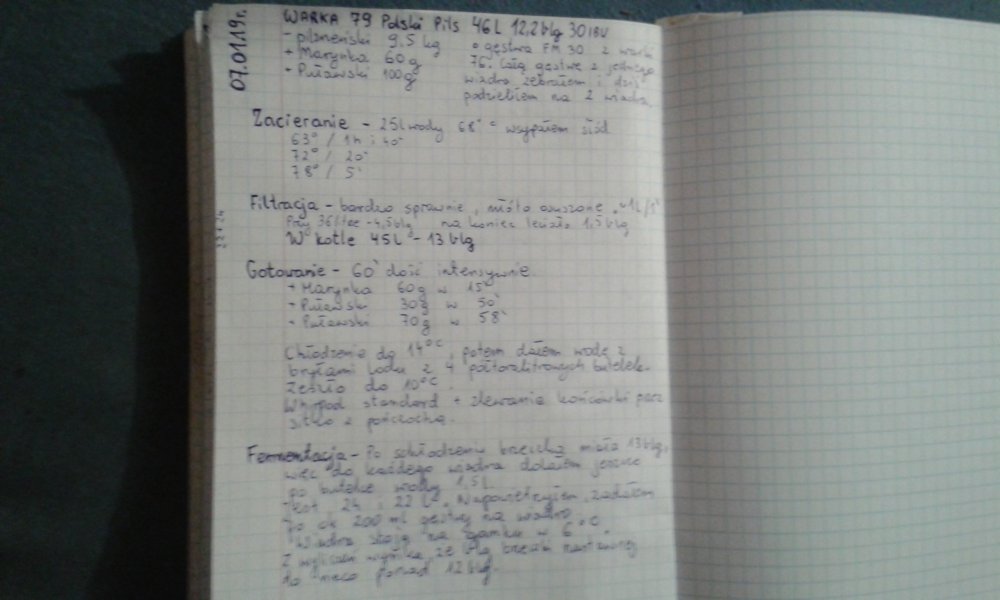 07.01.19r.
WARKA 79 Polski Pils 46L 12,2blg 30IBU
- pilzneński 9,5 kg
+ Marynka 60g
+ Puławski 100g
° gęstwa FM 30 z warki
76. Całą gęstwę z jednego
wiadra zebrałem i dziś
podzieliłem na 2 wiadra.
Zacieranie - 25l wody 68° wsypałem słód
63° / 1h i 40'
72° / 20'
78° / 5'
Filtracja - bardzo sprawnie, młóto osuszone. ~1L/1'
Przy 36litrze -4,5blg na koniec leciało 1,5blg
W kotle 45L - 13blg
Gotowanie - 60' dość intensywnie.
+ Marynka 60g w 15'
+ Puławski 30g w 50'
+ Puławski 70g w 58'
Chłodzenie do 14°C, potem dałem wodę z
bryłami lodu z 4 półtoralitrowych butelek.
Zeszło do 10°C.
Whirpool standard + zlewanie końcówki przez
sitko z pończochą.
Fermentacja - Po schłodzeniu brzeczka miała 13blg,
więc do każdego wiadra dolałem jeszcze
po butelce wody 1,5L
Jest 24 i 22L. Napowietrzyłem, zadałem
po ok 200 ml gęstwy na wiadro.
Wiadra stoją na ganku w 6°C.
Z wyliczeń wynika, że blg brzeczki nastawnej
to nieco ponad 12blg.